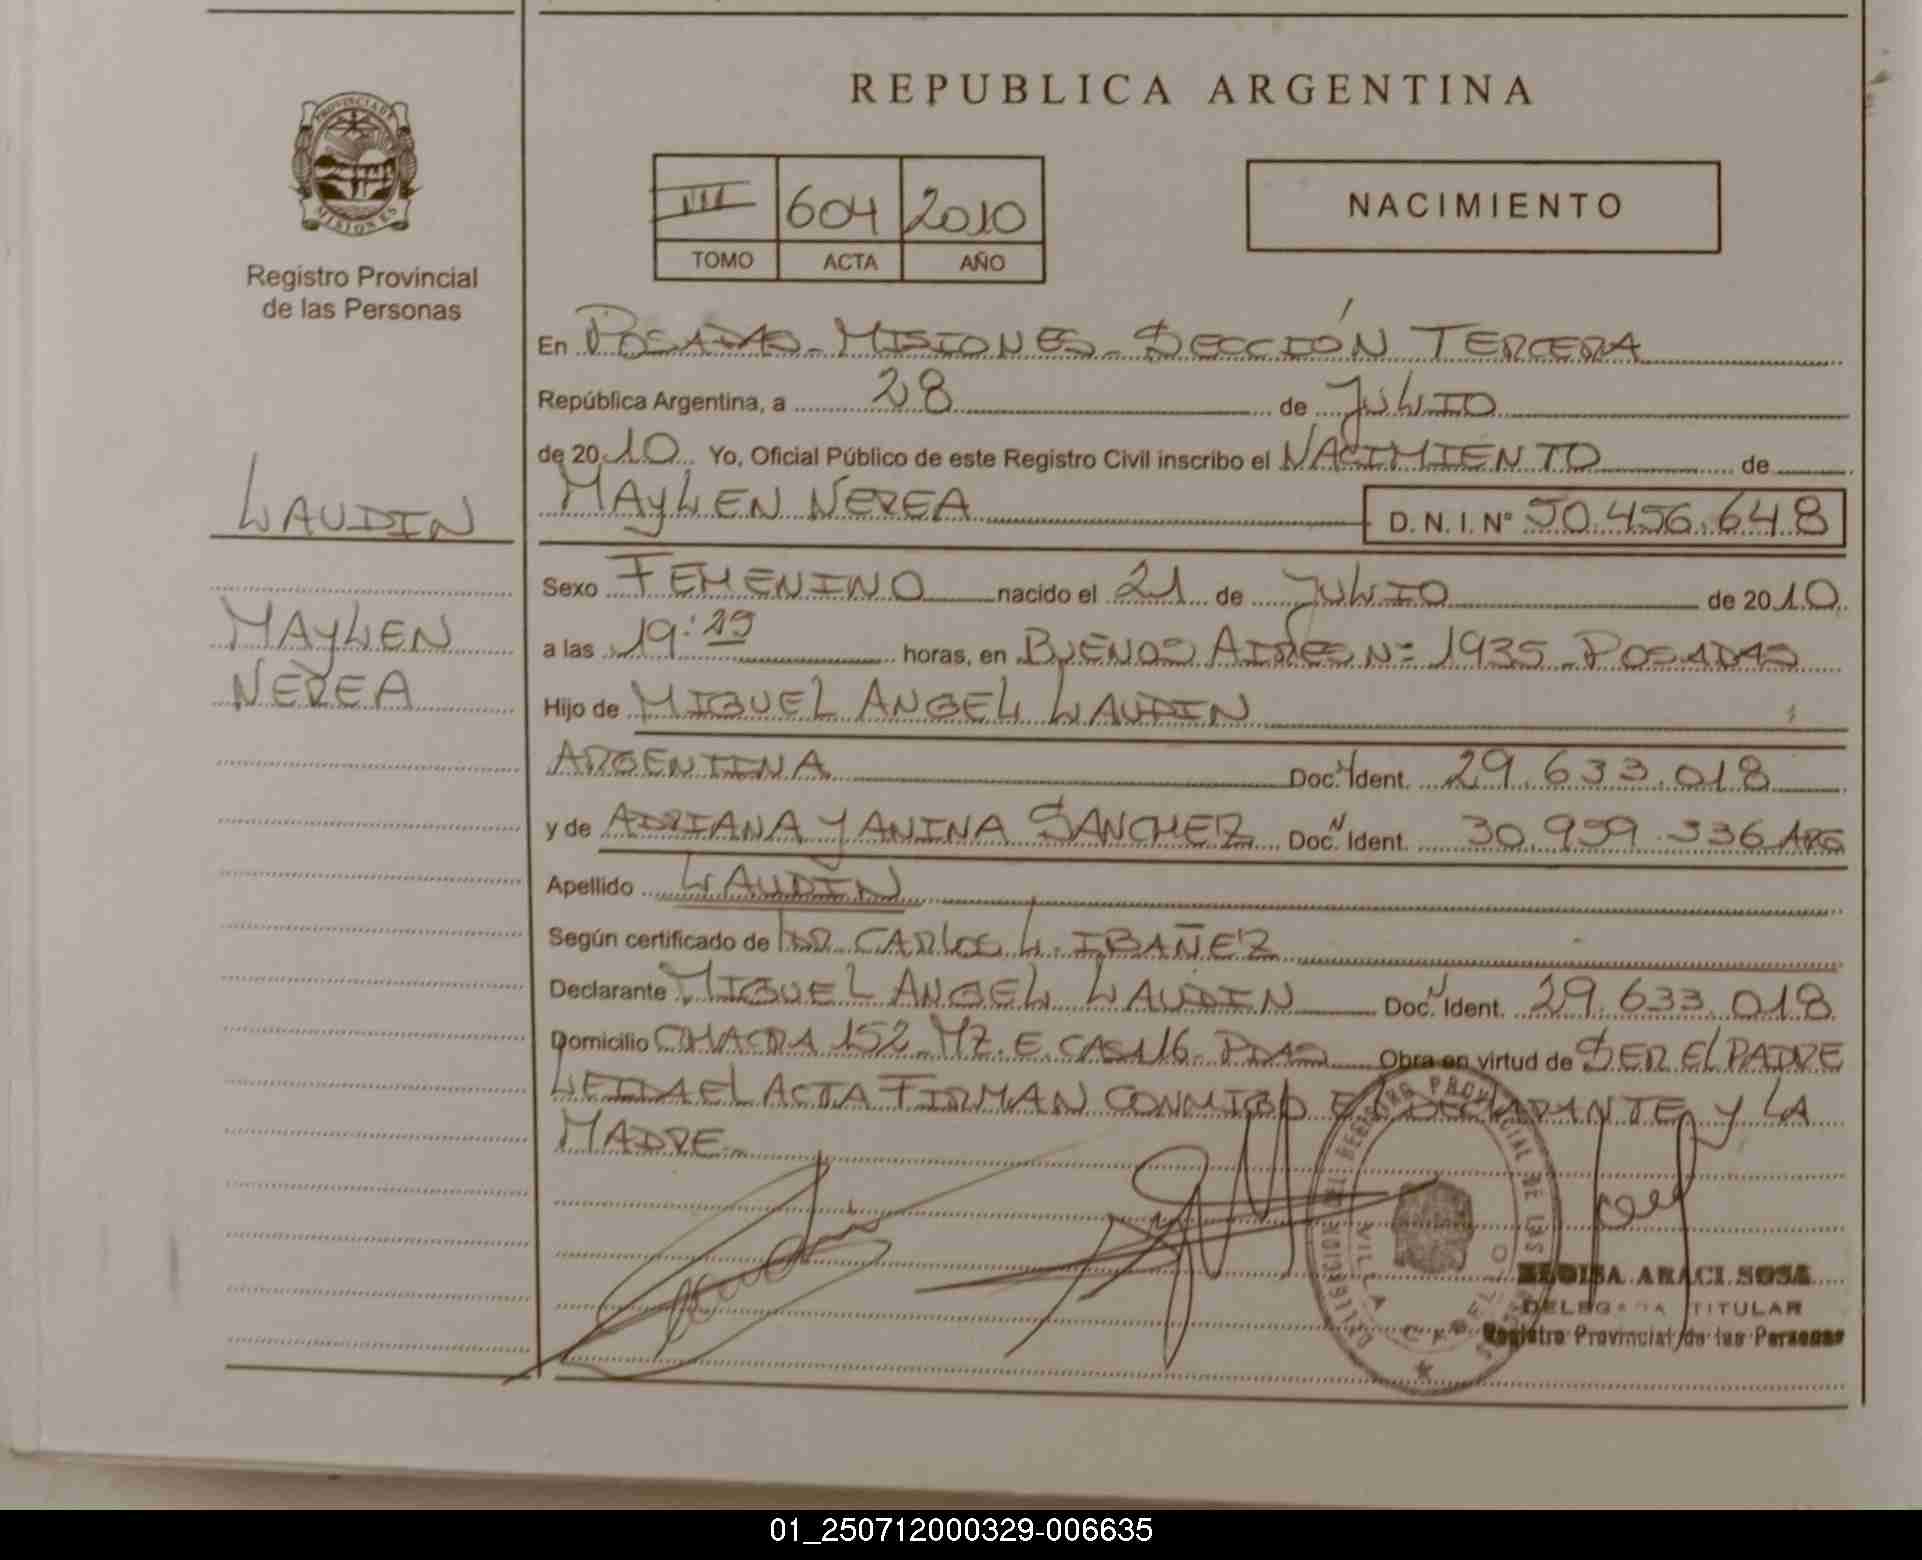 REPUBLICA ARGENTINA
PROVINCIA DE
MISIONES
Registro Provincial
de las Personas
III 604 2010
TOMO ACTA AÑO
NACIMIENTO
En POSADAS - MISIONES - SECCIÓN TERCERA
República Argentina, a 28 de JULIO
de 2010 Yo, Oficial Público de este Registro Civil inscribo el NACIMIENTO de
LAUDIN
MAYLEN NEREA D. N. I. Nº 50.456.648
Sexo FEMENINO nacido el 21 de JULIO de 2010
MAYLEN
NEREA
a las 19:29 horas, en BUENOS AIRES Nº 1935 - POSADAS
Hijo de MIGUEL ANGEL LAUDIN
ARGENTINA Doc. Ident. 29.633.018
y de ADRIANA YANINA SANCHEZ Doc. N Ident. 30.959.336 ARG
Apellido LAUDIN
Según certificado de DR. CARLOS L. IBAÑEZ
Declarante MIGUEL ANGEL LAUDIN Doc. N Ident. 29.633.018
Domicilio CHACRA 152 - MZ. E CASA 16 - PDAS Obra en virtud de SER EL PADRE
LEIDA EL ACTA FIRMAN CONMIGO EL DECLARANTE Y LA
MADRE -
REGISTRO PROVINCIAL DE LAS PERSONAS
VILLA CABELLO
ELOISA ARACI SOSA
DELEGADA TITULAR
Registro Provincial de las Personas
01_250712000329-006635